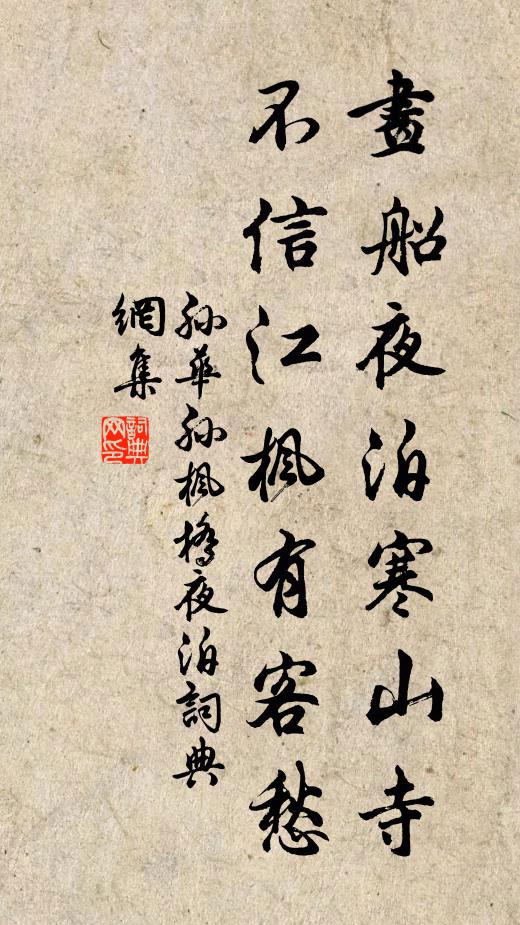 畫船夜泊寒山寺
不信江楓有客愁
孫華孫楓橋夜泊詞典
網集
詞典網印